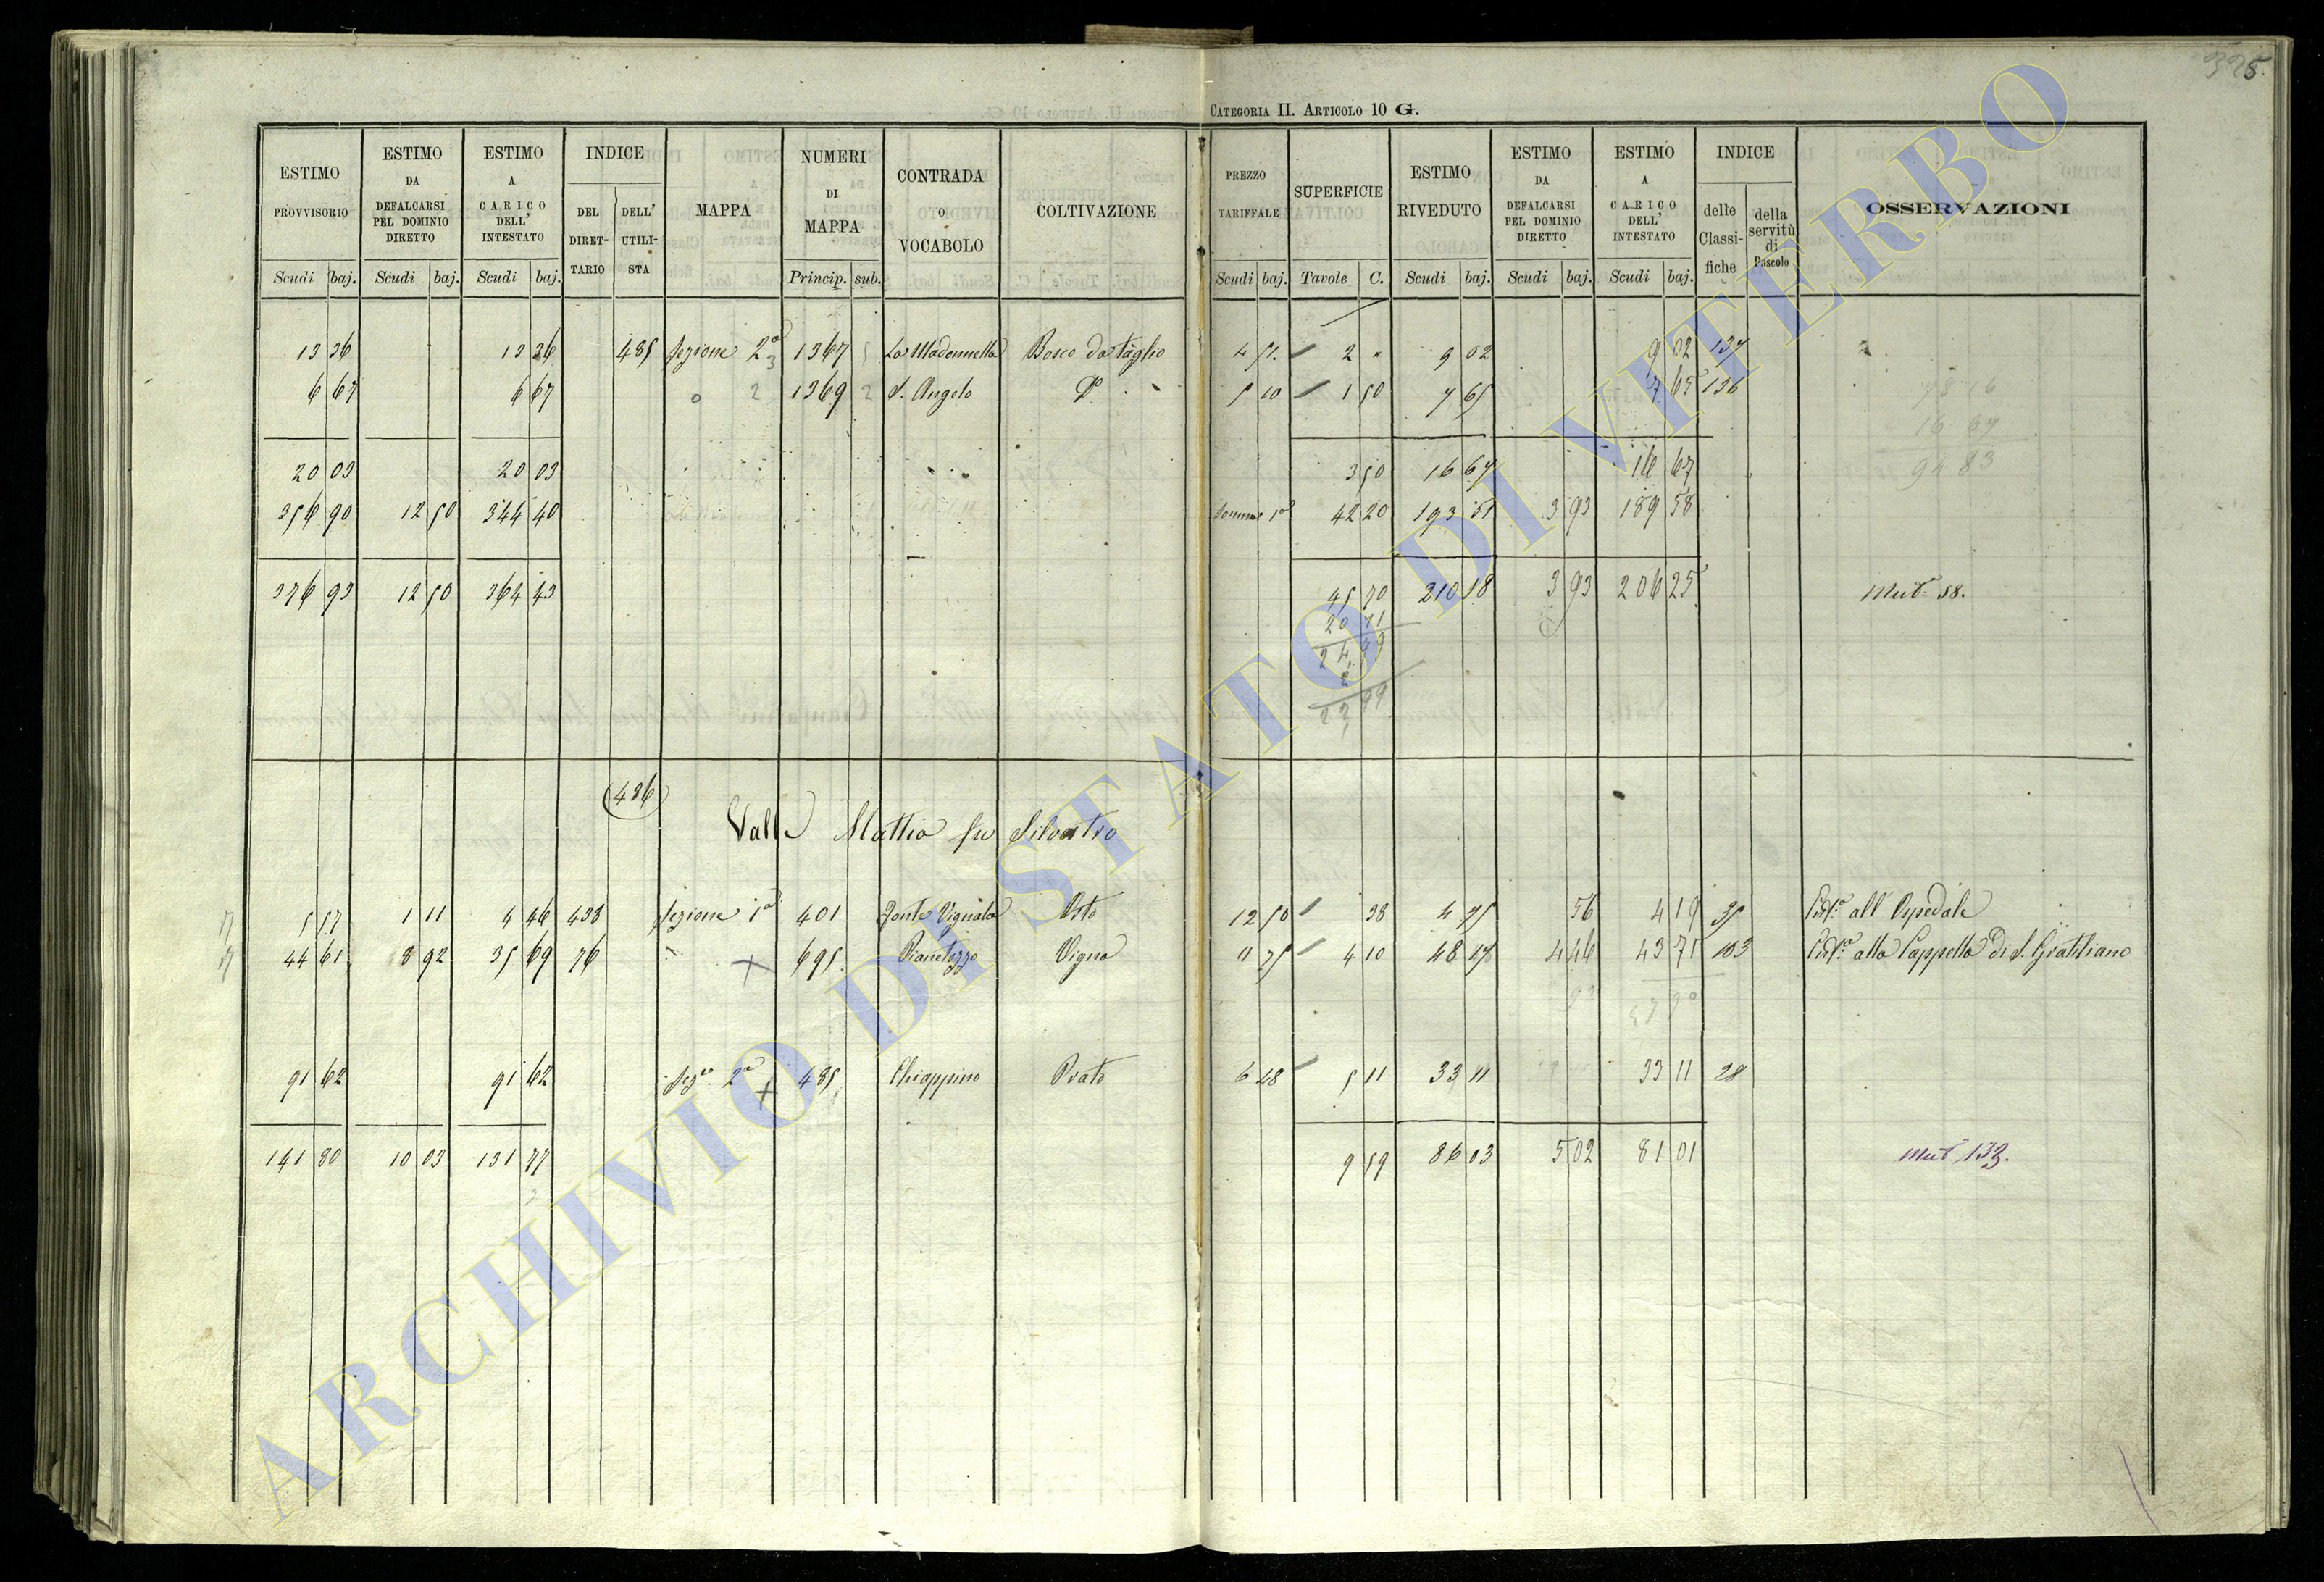 325.
CATEGORIA II. ARTICOLO 10 G.
ESTIMO PROVVISORIO Scudi baj. ESTIMO DA DEFALCARSI PEL DOMINIO DIRETTO Scudi baj. ESTIMO A CARICO DELL' INTESTATO Scudi baj. INDICE DEL DIRET-TARIO DELL' UTILI-STA MAPPA NUMERI DI MAPPA Princip. sub. CONTRADA O VOCABOLO COLTIVAZIONE PREZZO TARIFFALE Scudi baj. SUPERFICIE Tavole C. ESTIMO RIVEDUTO Scudi baj. ESTIMO DA DEFALCARSI PEL DOMINIO DIRETTO Scudi baj. ESTIMO A CARICO DELL' INTESTATO Scudi baj. INDICE delle Classi-fiche della servitù di Pascolo OSSERVAZIONI
13 36 13 36 485 Sezione 2a 3 1367 La Madonnella Bosco da taglio 4 51 2 " 9 02 9 02 137
6 67 6 67 2 1369 2 S. Angelo Do 5 10 1 50 7 65 7 65 136
78 16
16 67
94 83
20 03 20 03 3 50 16 67 16 67
356 90 12 50 344 40 Somma 1a 42 20 193 51 3 93 189 58
376 93 12 50 364 43 45 70 210 18 3 93 206 25 Mut. 58.
20 71
24,99
2
22,99
(486)
Valle Mattia fu Silvestro
5 57 1 11 4 46 438 Sezione 1a 401 Fonte Vignala Orto 12 50 38 4 75 56 4 19 35 all' Ospedale
44 61 8 92 35 69 76 " + 695 Pianetozzo Vigna 11 75 4 10 48 17 4 46 43 71 103 alla Cappella di S. Grattiano
47 90
91 62 91 62 Sezne 2a + 485 Chiappino Prato 6 48 5 11 33 11 33 11 28
141 80 10 03 131 77 9 59 86 03 5 02 81 01 Mut. 133.
ARCHIVIO DI STATO DI VITERBO